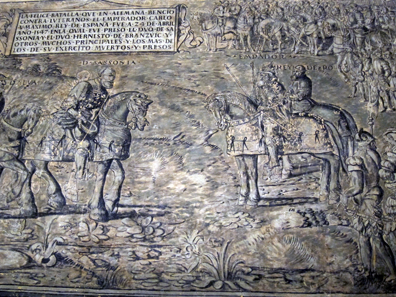 LA FELICE BATALLA QVE EN ALEMAÑA BENCIO
CONTRA LVTERANOS EL EMPERADOR CARLO
V MAXIMO REY DE ESPAÑA FVE A 24 DE ABRIL
AÑO 1547 EN LA QVAL FVE PRESO EL DVQ DE SA
SONIA Y EL DVQ HERNISTO DE BRANZVIC Y
OTROS MVCHOS PRINCIPALES Y LOS MAS DE
LOS DE SV EXERCITO MVERTOS Y PRESOS